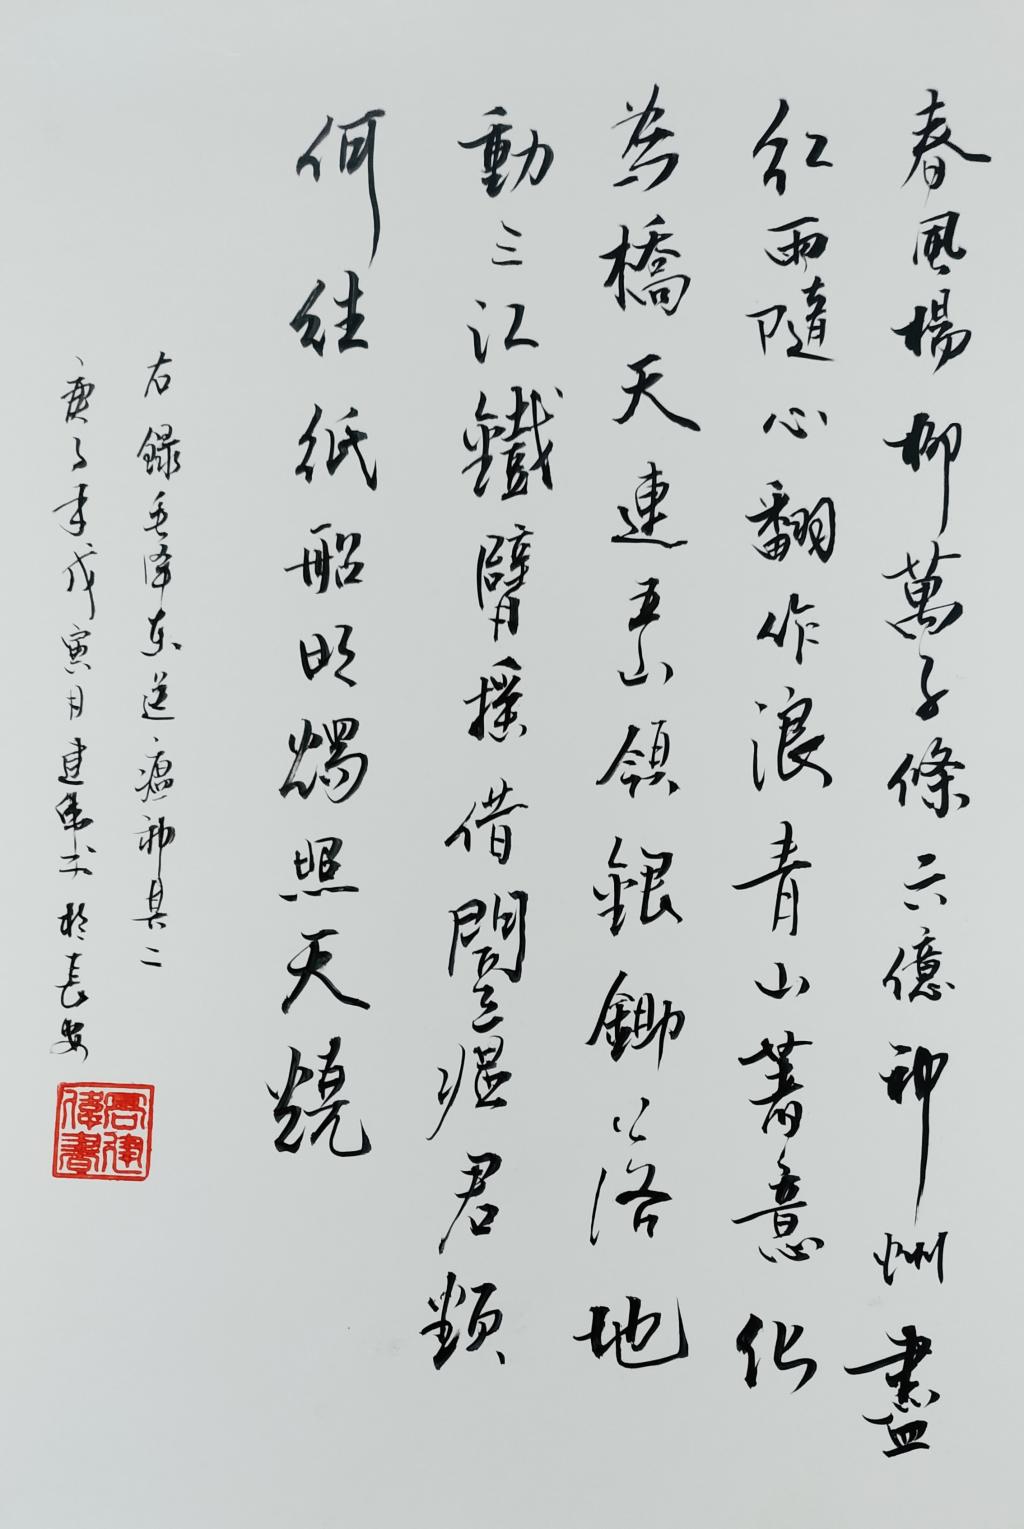 春風楊柳萬千條六億神州盡
紅雨隨心翻作浪青山著意化
為橋天連五嶺銀鋤落地
動三江鐵臂搖借問瘟君類
何往紙船明燭照天燒
右錄毛泽东送瘟神其二
庚子年戊寅月建偉书於長安
建偉書